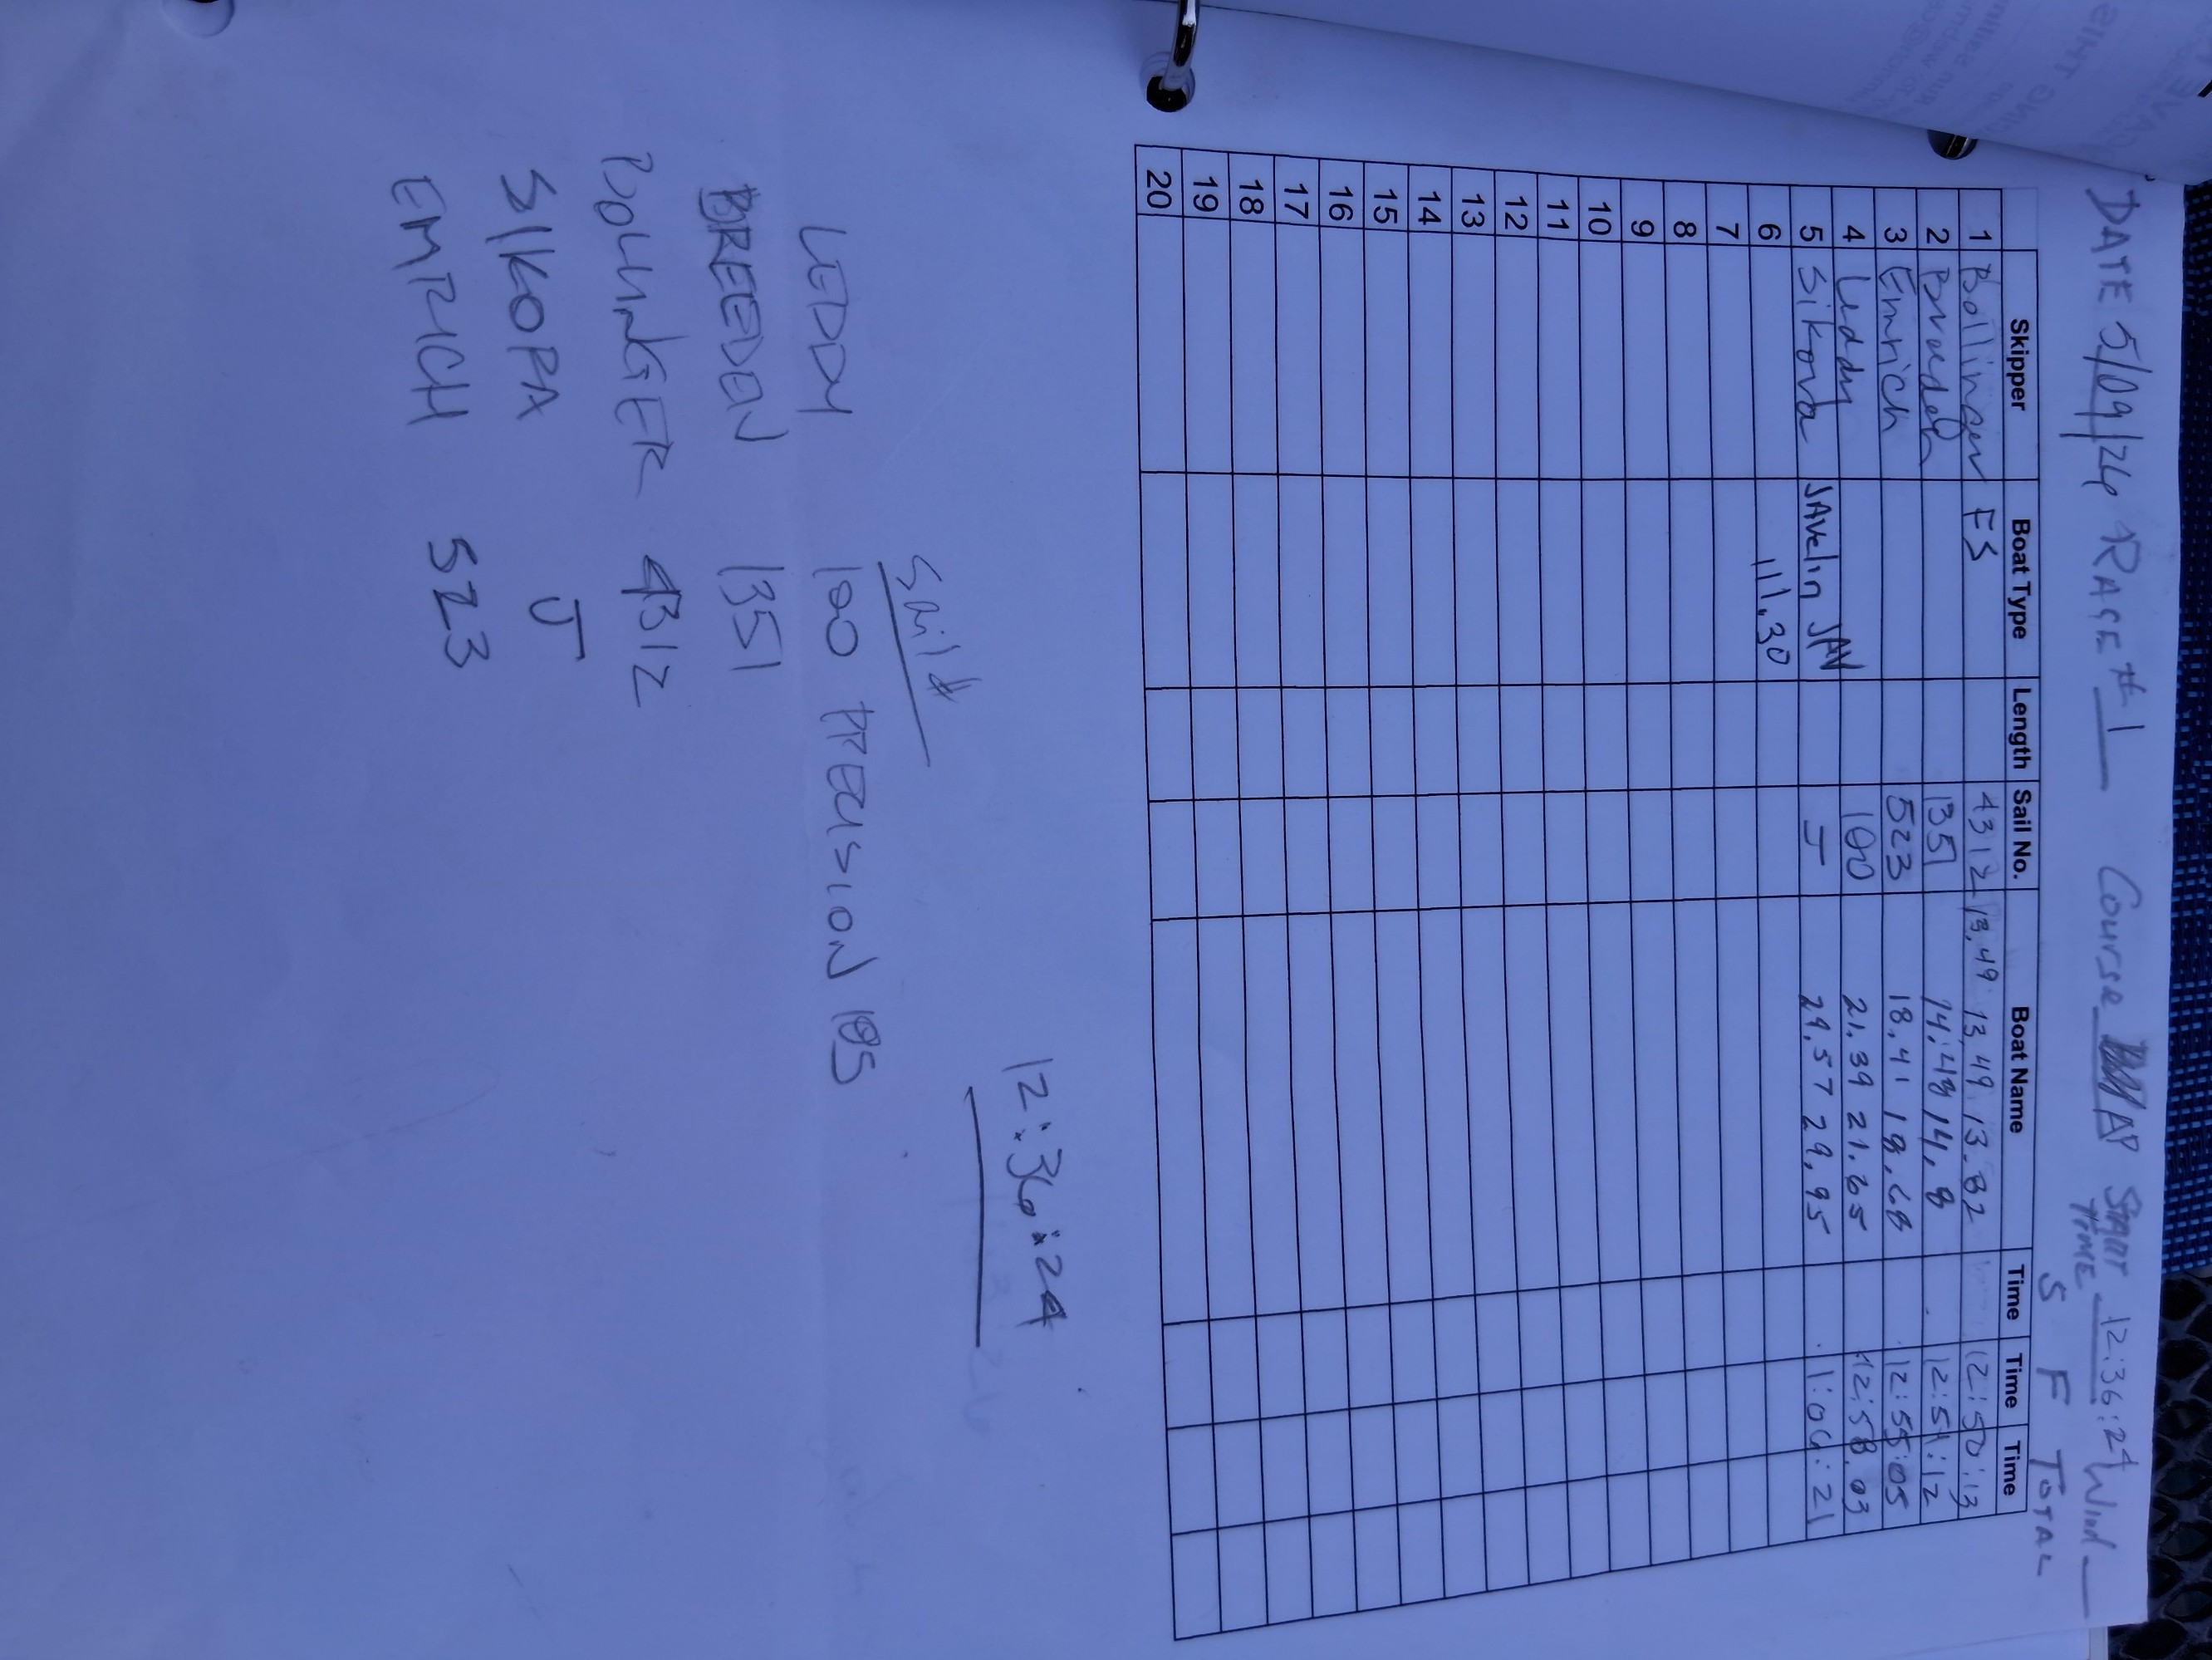 DATE 5/09/24 RACE # 1 Course AP START TIME 12:36:24 Wind
S F TOTAL
Skipper Boat Type Length Sail No. Boat Name Time Time Time
1 Bollinger FS 4312 13,49 13,49 13.82 12:50:13
2 Breeden 1351 14:48 14,8 12:51:12
3 Emrich 523 18,41 18,68 12:55:05
4 Leddy 100 21.39 21.65 12:58.03
5 Sikora JAvelin JAV J 29,57 29,95 1:06:21
6 111.30
7
8
9
10
11
12
13
14
15
16
17
18
19
20
12:36:24
Sail #
LEDDY 100 PRECISION 185
BREEDEN 1351
BOLLINGER 4312
SIKORA J
EMRICH 523